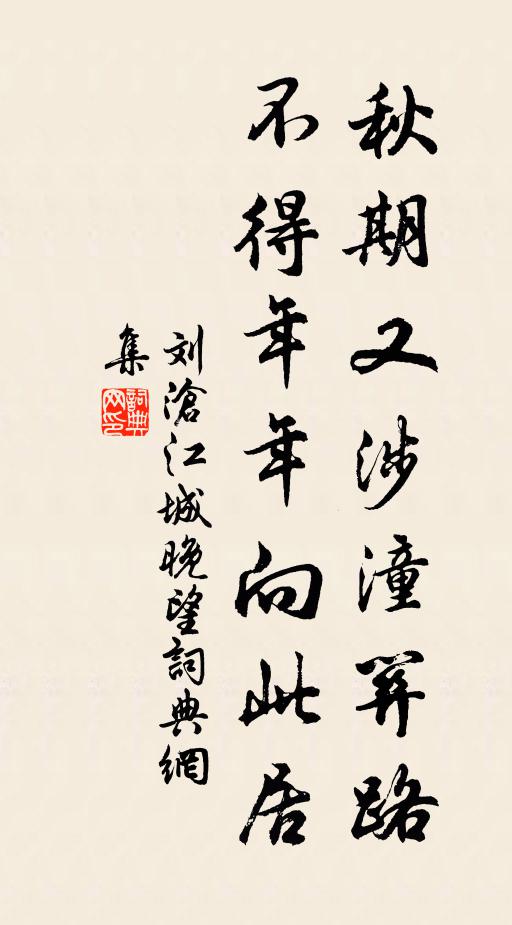 秋期又涉潼関路
不得年年向此居
刘滄江城晚望詞典網
集
詞典网印